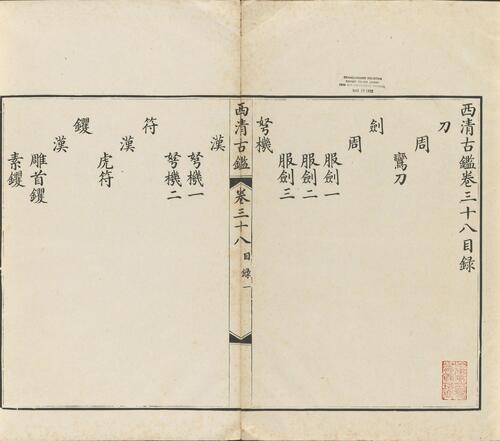 西清古鑑卷三十八目録
刀
周
鸞刀
劍
周
服劍一
服劍二
服劍三
弩機
西清古鑑
卷三十八
目録一
漢
弩機一
弩機二
符
漢
虎符
鑺
漢
雕首鑺
素鑺